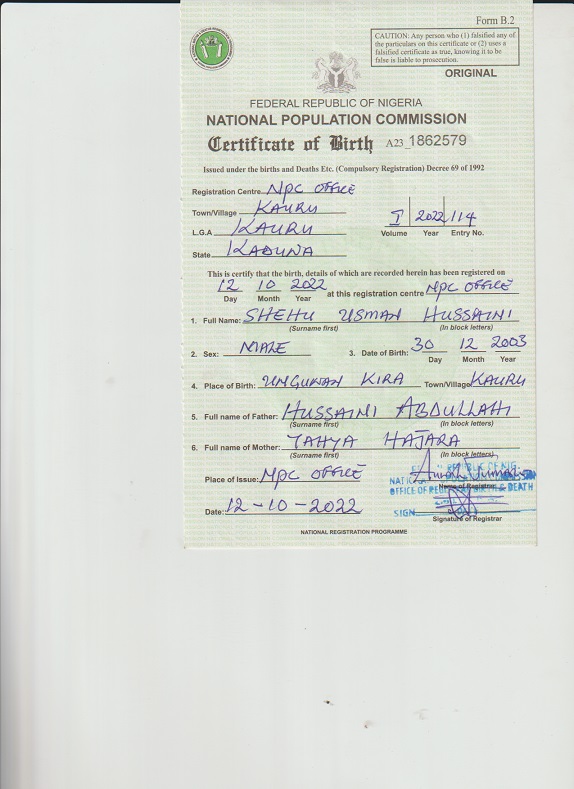 Form B.2
CAUTION: Any person who (1) falsified any of
the particulars on this certificate or (2) uses a
falsified certificate as true, knowing it to be
false is liable to prosecution.
ORIGINAL
FEDERAL REPUBLIC OF NIGERIA
NATIONAL POPULATION COMMISSION
Certificate of Birth A23 1862579
Issued under the births and Deaths Etc. (Compulsory Registration) Decree 69 of 1992
Registration Centre NPC OFFICE
Town/Village KAURU
L.G.A KAURU
State KADUNA
I 2022 114
Volume Year Entry No.
This is certify that the birth, details of which are recorded herein has been registered on
12 10 2022 at this registration centre NPC OFFICE
Day Month Year
1. Full Name: SHEHU USMAN HUSSAINI
(Surname first) (In block letters)
2. Sex: MALE 3. Date of Birth: 30 12 2003
Day Month Year
4. Place of Birth: UNGUWAN KIRA Town/Village KAURU
5. Full name of Father: HUSSAINI ABDULLAHI
(Surname first) (In block letters)
6. Full name of Mother: YAHYA HAJARA
(Surname first) (In block letters)
Place of Issue: NPC OFFICE
Name of Registrar
OFFICE OF & DEATH
SIGN
Date: 12-10-2022
Signature of Registrar
NATIONAL REGISTRATION PROGRAMME